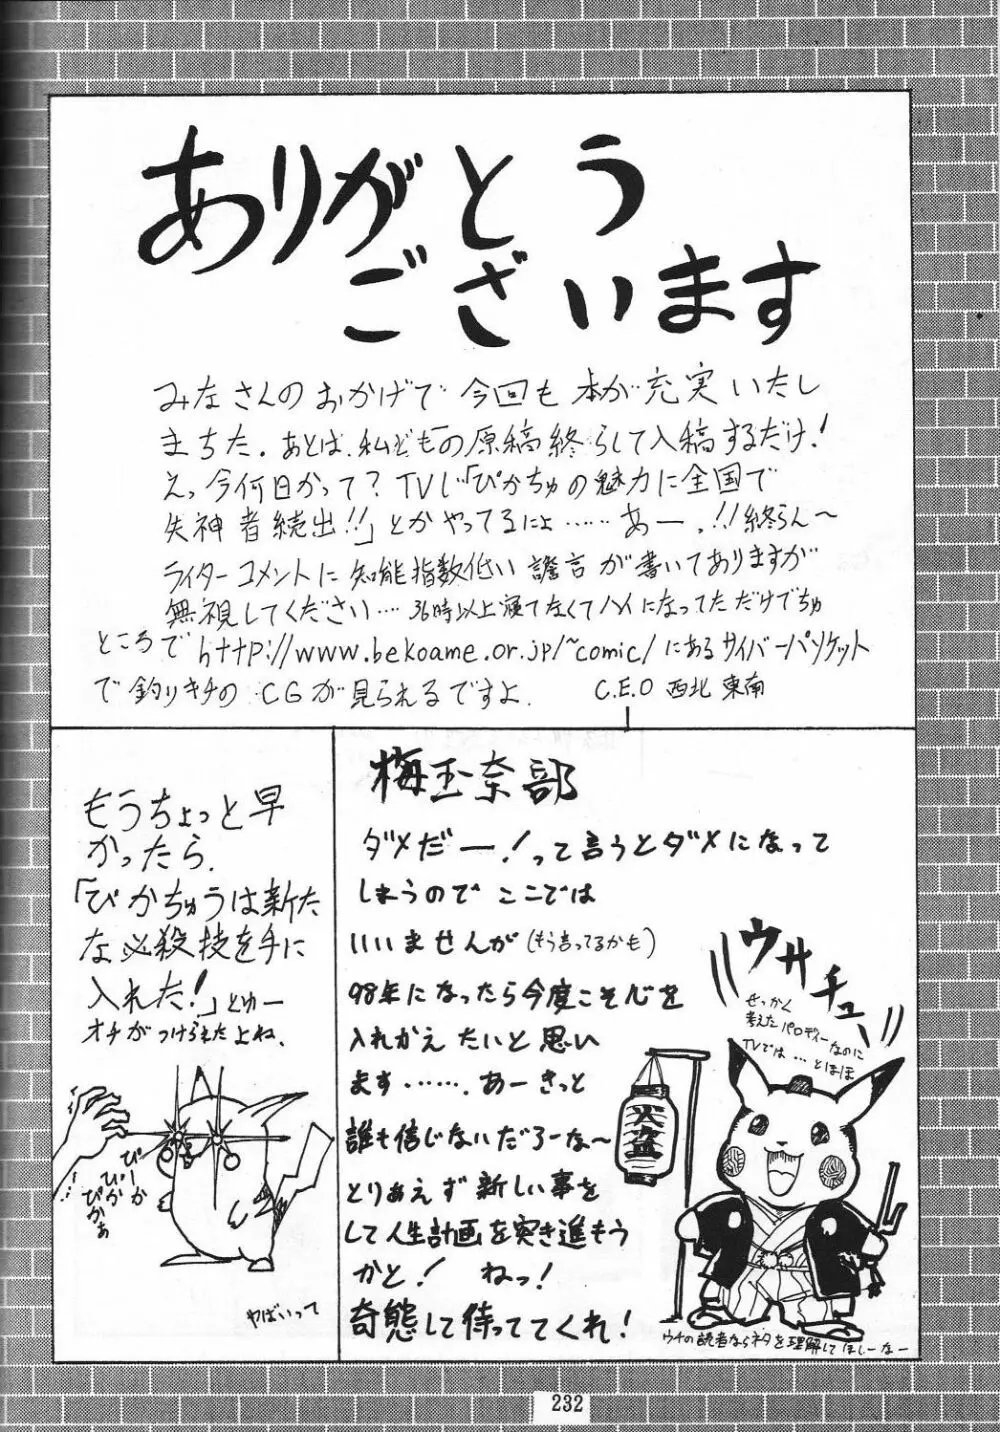 ありがとう
ございます
みなさんのおかげで今回も本が充実いたし
まちた。あとは、私どもの原稿終らして入稿するだけ!
えっ、今何日かって?TVじ「ぴかちゅの魅力に全国で
失神者続出!!」とかやってるによ……あー、!!終らん〜
ライターコメントに知能指数低い譫言が書いてありますが
無視してください…36時以上寝てなくてハイになってただけでちゅ
ところでhttp://www.bekoame.or.jp/~comic/にあるサイバーパソケット
で釣りキチのCGが見られるですよ.
C.E.O 西北 東南
もうちょっと早
かったら、
「びかちゅうは新た
な必殺技を手に
入れた!」とゆー
オチがつけられたよね、
ぴーか
ぴか
ぴかぁ
やばいって
梅玉奈部
ダメだー!って言うとダメになって
しまうのでここでは
いいませんが(もう言ってるかも)
98年になったら今度こそ心を
入れかえたいと思い
ます……。あーきっと
誰も信じないだろーな〜
とりあえず新しい事を
して人生計画を突き進もう
かと! ねっ!
奇態して待っててくれ!
ウサチュー
せっかく
考えたパロディーなのに
TVでは…とほほ
火盗
ウチの読者ならネタを理解してほしーなー
232